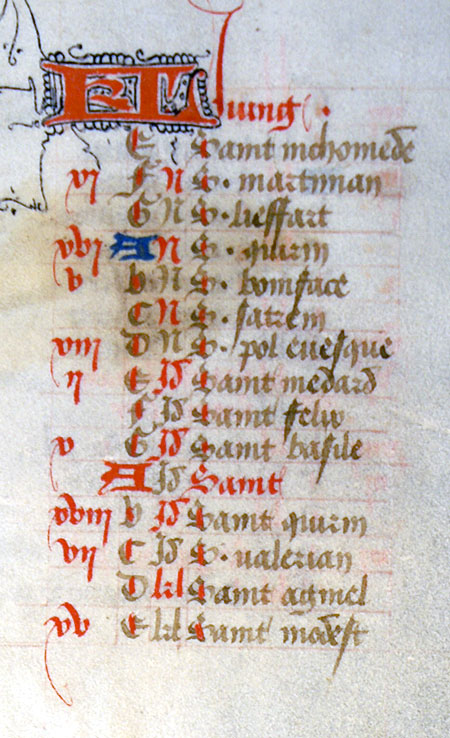 KL Juing
E Saint nichomede
vi F N S. martinian
G N S. lieffart
xvi A N S. quirin
v b N S. boniface
C N S. satrein
viii D N S. pol evesque
ii E Id Saint medard
F Id Saint felix
v G Id Saint basile
A Id Saint
xviii b Id Saint quirin
vii C Id S. valerian
D kl Saint agniel
xv E kl Saint modest